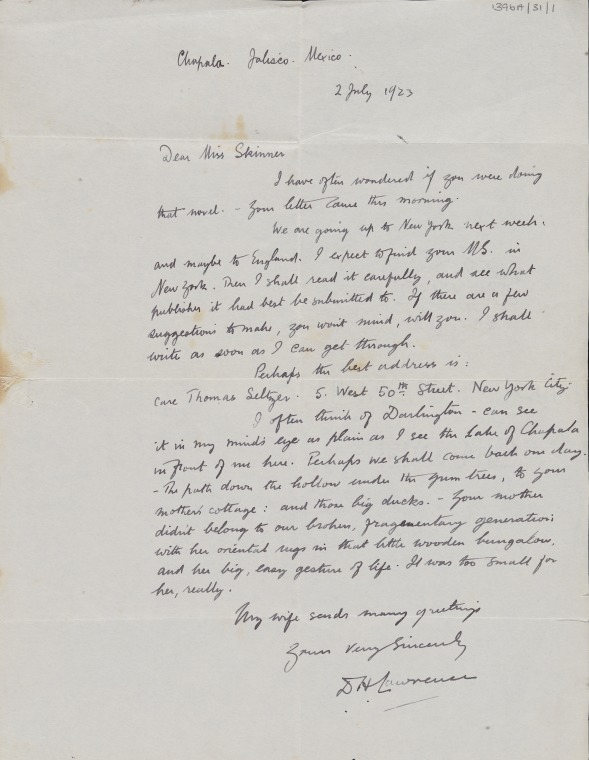 1396A/31/1
Chapala. Jalisco. Mexico.
2 July 1923
Dear Miss Skinner
I have often wondered if you were doing
that novel. - Your letter came this morning.
We are going up to New York next week.
and maybe to England. I expect to find your MS. in
New York. Then I shall read it carefully, and see what
publisher it had best be submitted to. If there are a few
suggestions to make, you won't mind, will you. I shall
write as soon as I can get through.
Perhaps the best address is:
care Thomas Seltzer. 5. West 50th Street. New York City.
I often think of Darlington - can see
it in my mind's eye as plain as I see the Lake of Chapala
in front of me here. Perhaps we shall come back one day.
- The path down the hollow under the gum trees, to your
mother's cottage: and those big ducks. - Your mother
didn't belong to our broken, fragmentary generation:
with her oriental rugs in that little wooden bungalow,
and her big, easy gesture of life. It was too small for
her, really.
My wife sends many greetings
Yours very Sincerely
D H Lawrence